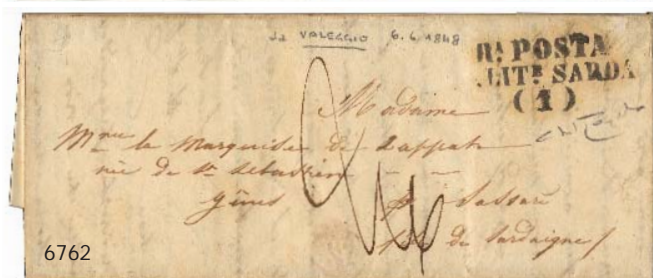 da VALEGGIO 6.6.1848
Rª POSTA
LITᴱ SARDA
(1)
Madame
Mᵐᵉ la Marquise de
née de Sᵗ Sebastien
Gênes p. Sassari
de Sardaigne /
6762